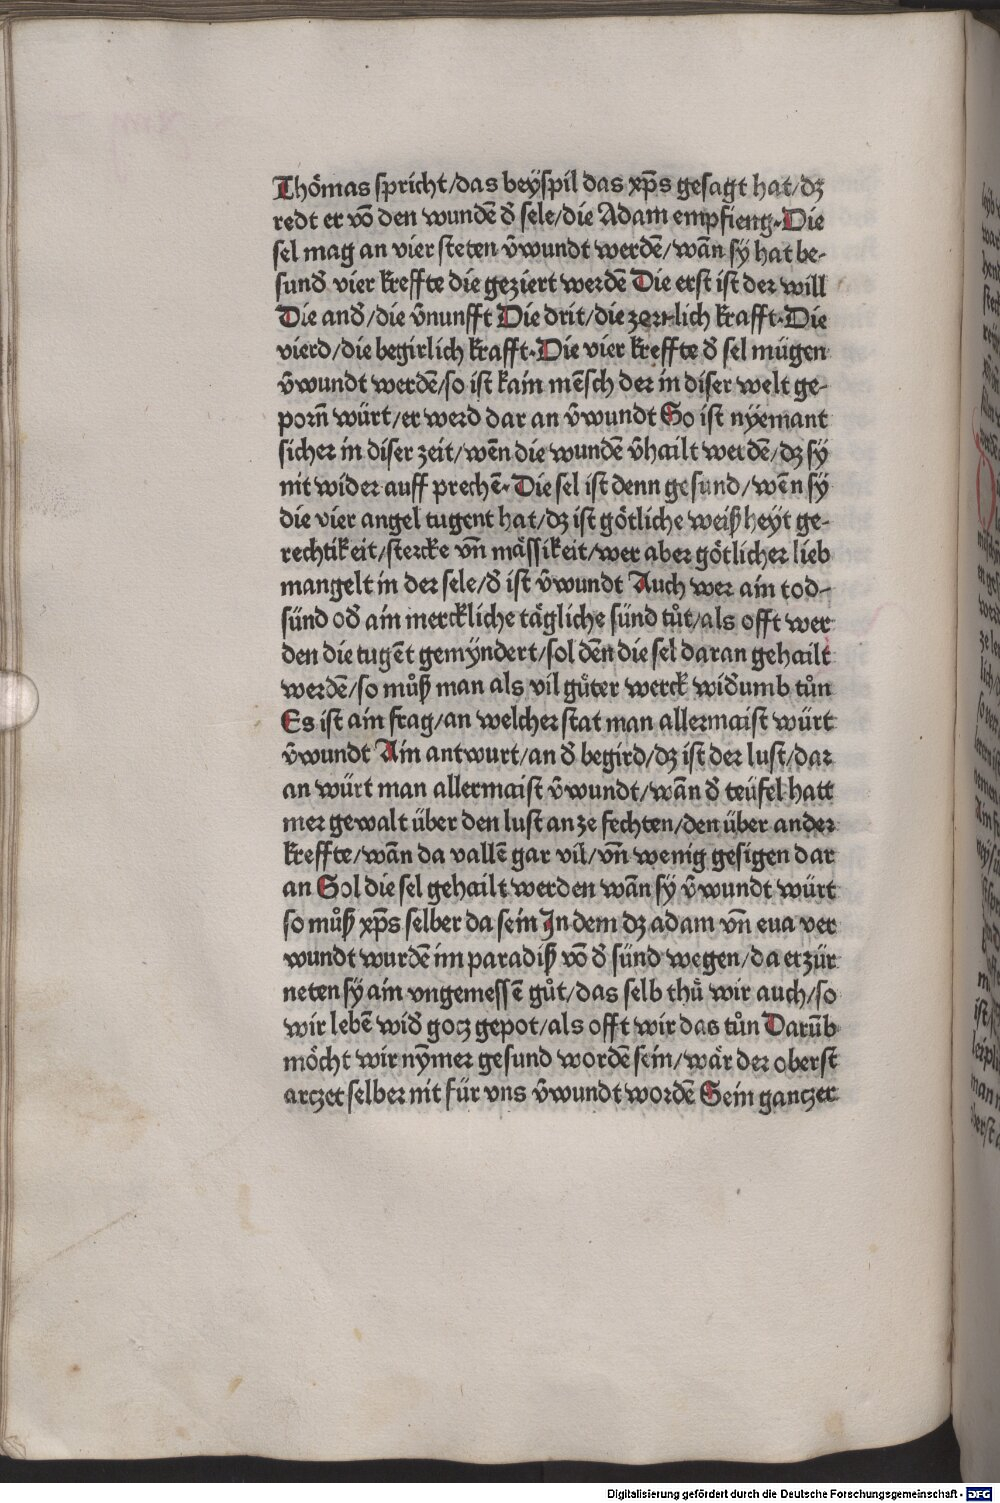 Thömas spricht/das beÿspil das xp̄s gesagt hat/dz
redt er võ den wundẽ d̄ sele/die Adam empfieng·Die
sel mag an vier steten v̄wundt werdẽ/wañ sÿ hat be-
sund̄ vier kreffte die geziert werdẽ Die erst ist der will
Die and̄/die v̄nunfft Die drit/die zorn-lich krafft·Die
vierd/die begirlich krafft·Die vier kreffte d̄ sel mügen
v̄wundt werdẽ/so ist kain mẽsch der in diser welt ge-
porñ würt/er werd dar an v̄wundt So ist nÿemant
sicher in diser zeit/weñ die wundẽ v̄hailt werdẽ/dz sÿ
nit wider auff prechẽ·Die sel ist denn gesund/weñ sÿ
die vier angel tugent hat/dz ist götliche weißheyt ge-
rechtikeit/stercke vñ mässikeit/wer aber götlicher lieb
mangelt in der sele/d̄ ist v̄wundt Auch wer ain tod-
sünd od̄ ain merckliche tägliche sünd tůt/als offt wer
den die tugẽt gemÿndert/sol dẽn die sel daran gehailt
werdẽ/so můß man als vil gůter werck wid̄umb tůn
Es ist ain frag/an welcher stat man allermaist würt
v̄wundt Ain antwurt/an d̄ begird/dz ist der lust/dar
an würt man allermaist v̄wundt/wañ d̄ teüfel hatt
mer gewalt über den lust an ze fechten/den über ander
kreffte/wañ da vallẽ gar vil/vñ wenig gesigen dar
an Sol die sel gehailt werden wañ sÿ v̄wundt würt
so můß xp̄s selber da sein In dem dz adam vñ eua ver
wundt wurdẽ im paradiß võ d̄ sünd wegen/da erzür
neten sÿ ain vngemessẽ gůt/das selb thů wir auch/so
wir lebẽ wid̄ gocz gepot/als offt wir das tůn Darūb
möcht wir nȳmer gesund wordẽ sein/wär der oberst
arczet selber nit für vns v̄wundt wordẽ Sein ganczer
Digitalisierung gefördert durch die Deutsche Forschungsgemeinschaft - DFG